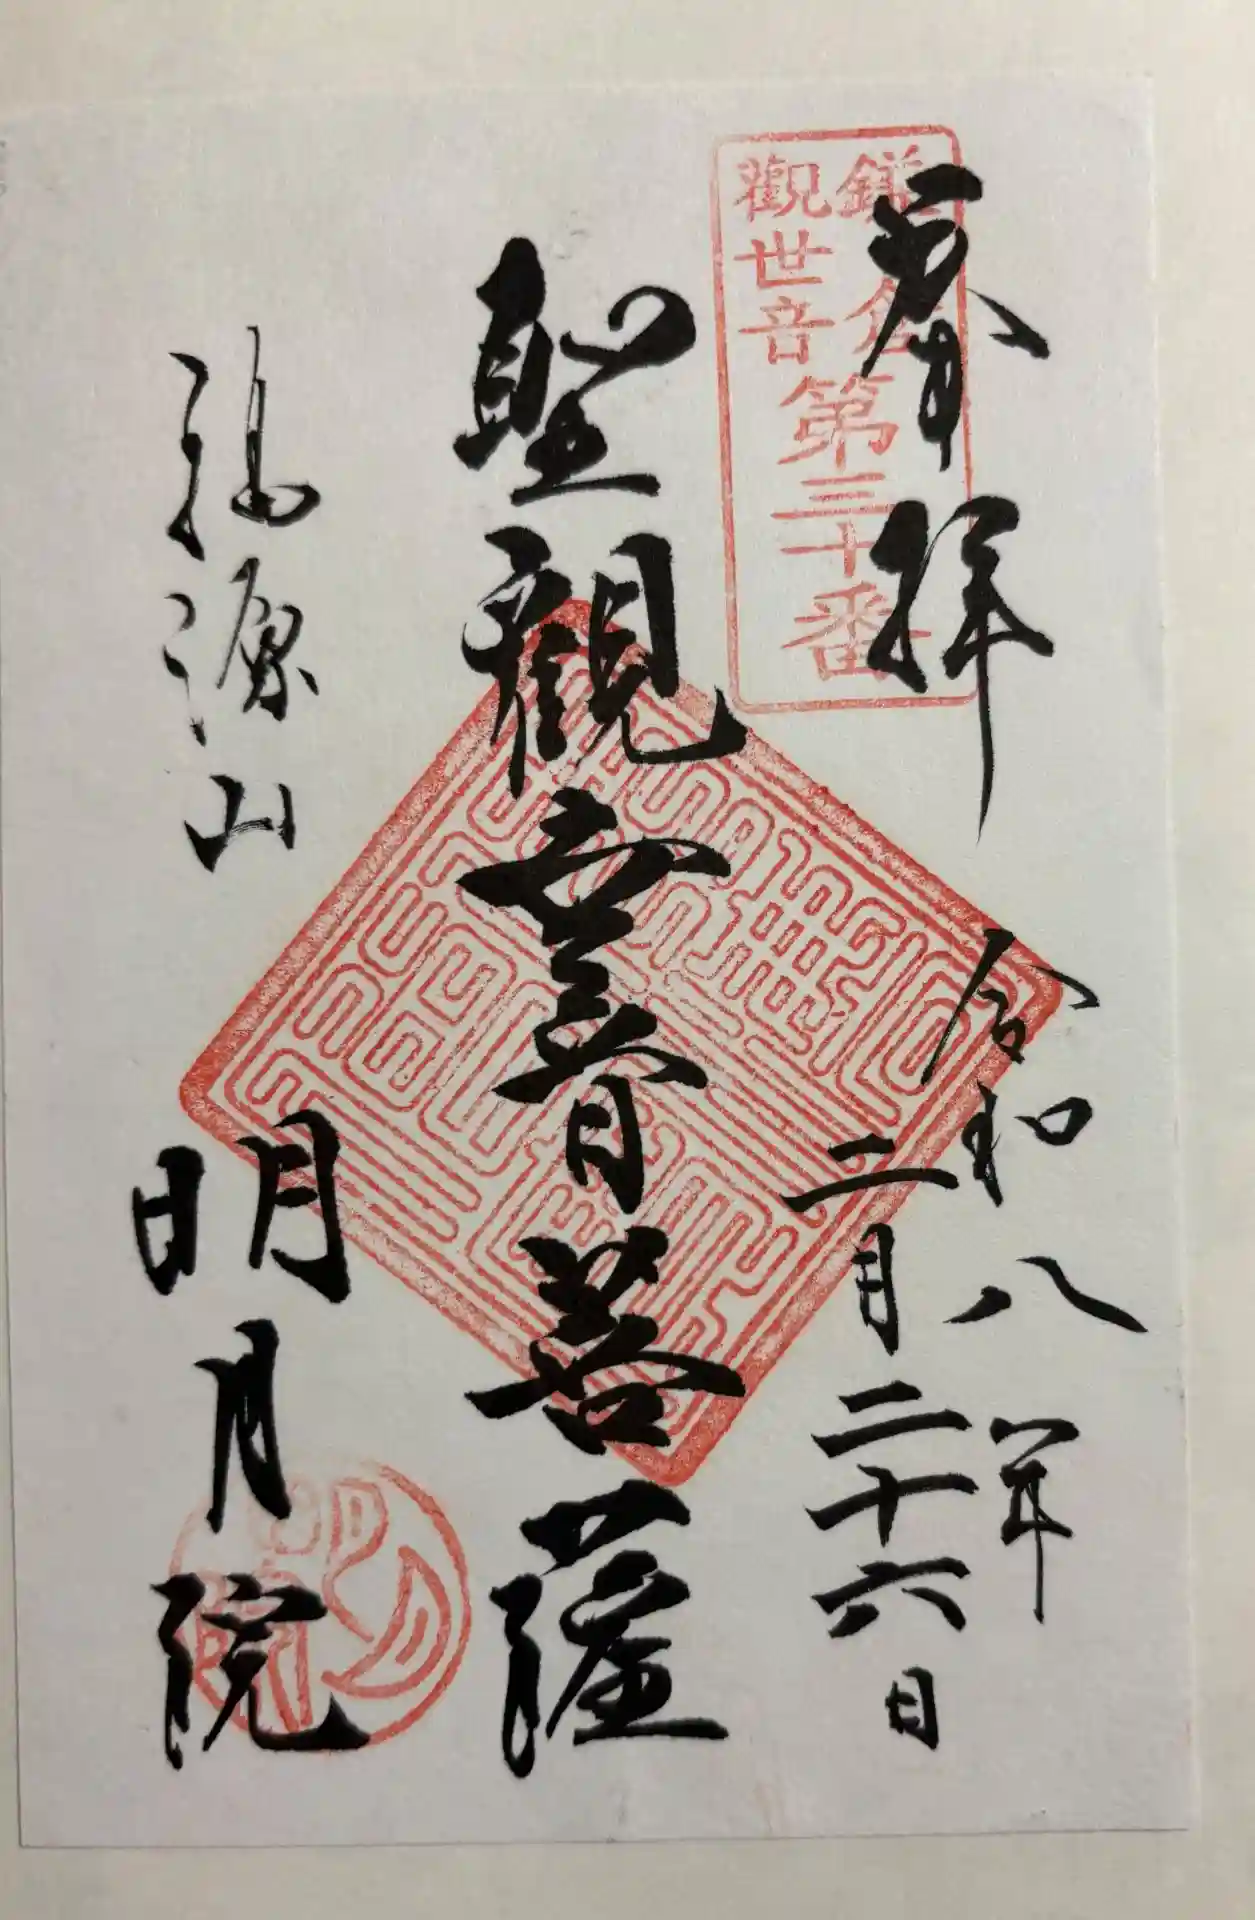 奉拝
鎌倉
觀世音
第三十番
令和八年
二月二十六日
聖觀世音菩薩
福源山
明月院